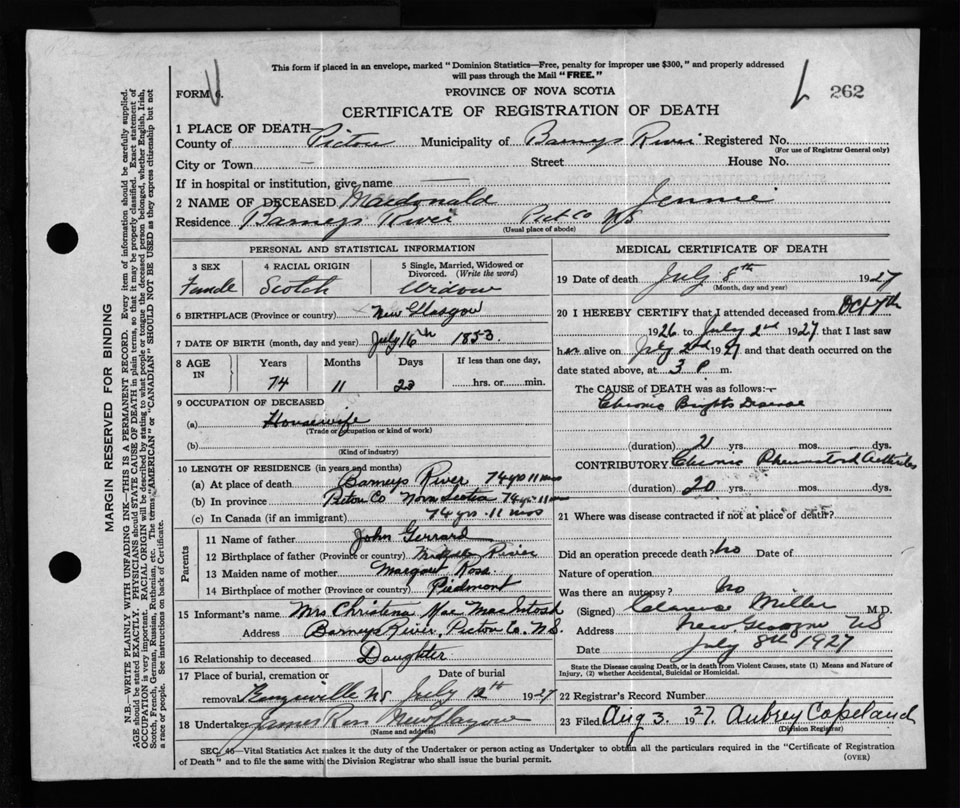 This form if placed in an envelope, marked "Dominion Statistics—Free, penalty for improper use $300," and properly addressed
will pass through the Mail "FREE."
FORM 6.
PROVINCE OF NOVA SCOTIA
262
CERTIFICATE OF REGISTRATION OF DEATH
1 PLACE OF DEATH—
County of Pictou Municipality of Barneys River Registered No.
(For use of Registrar General only)
City or Town — Street House No.
If in hospital or institution, give name —
2 NAME OF DECEASED Macdonald Jennie
Residence Barneys River Pict Co NS
(Usual place of abode)
PERSONAL AND STATISTICAL INFORMATION
3 SEX 4 RACIAL ORIGIN 5 Single, Married, Widowed or
Divorced. (Write the word)
Female Scotch Widow
6 BIRTHPLACE (Province or country) New Glasgow
7 DATE OF BIRTH (month, day and year) July 16th 1853
8 AGE IN Years Months Days If less than one day,
74 11 23 hrs. or min.
9 OCCUPATION OF DECEASED
(a) Housewife
(Trade or occupation or kind of work)
(b)
(Kind of industry)
10 LENGTH OF RESIDENCE (in years and months)
(a) At place of death Barneys River 74 yrs 11 mos
(b) In province Picton Co Nova Scotia 74 yrs 11 mos
(c) In Canada (if an immigrant) 74 yrs. 11 mos
Parents
11 Name of father John Gerrard
12 Birthplace of father (Province or country) River
13 Maiden name of mother Margaret Ross
14 Birthplace of mother (Province or country) Piedmont
15 Informant's name Mrs Christena Mae MacIntosh
Address Barneys River, Picton Co. N.S.
16 Relationship to deceased Daughter
17 Place of burial, cremation or Date of burial
removal NS July 12th 1927
18 Undertaker James Ross New Glasgow
(Name and address)
MEDICAL CERTIFICATE OF DEATH
19 Date of death July 8th 1927
(Month, day and year)
20 I HEREBY CERTIFY that I attended deceased from Oct 7th
1926 to July 2nd 1927 that I last saw
her alive on July 2nd 1927 and that death occurred on the
date stated above, at 3 P m.
The CAUSE of DEATH was as follows:—
Chronic Brights Disease
(duration) 2 yrs. mos. dys.
CONTRIBUTORY Chronic Rheumatoid Arthritis
(duration) 20 yrs. mos. dys.
21 Where was disease contracted if not at place of death?
Did an operation precede death? No Date of
Nature of operation
Was there an autopsy? No
(Signed) Clarence Miller M.D.
Address New Glasgow NS
Date July 8th 1927
State the Disease causing Death, or in death from Violent Causes, state (1) Means and Nature of
Injury, (2) whether Accidental, Suicidal or Homicidal.
22 Registrar's Record Number
23 Filed Aug 3. 1927. Aubrey Copeland
(Division Registrar)
SEC. 46—Vital Statistics Act makes it the duty of the Undertaker or person acting as Undertaker to obtain all the particulars required in the "Certificate of Registration
of Death" and to file the same with the Division Registrar who shall issue the burial permit. (OVER)
MARGIN RESERVED FOR BINDING
N.B.—WRITE PLAINLY WITH UNFADING INK—THIS IS A PERMANENT RECORD. Every item of information should be carefully supplied.
AGE should be stated EXACTLY. PHYSICIANS should STATE CAUSE OF DEATH in plain terms, so that it may be properly classified. Exact statement of
OCCUPATION is very important. RACIAL ORIGIN will be described by stating to what people or tongue the deceased person belonged, whether English, Irish,
Scotch, French, German, Russian, Ruthenian, etc. The terms "AMERICAN" or "CANADIAN" SHOULD NOT BE USED as they express citizenship but not
a race of people. See instructions on back of Certificate.